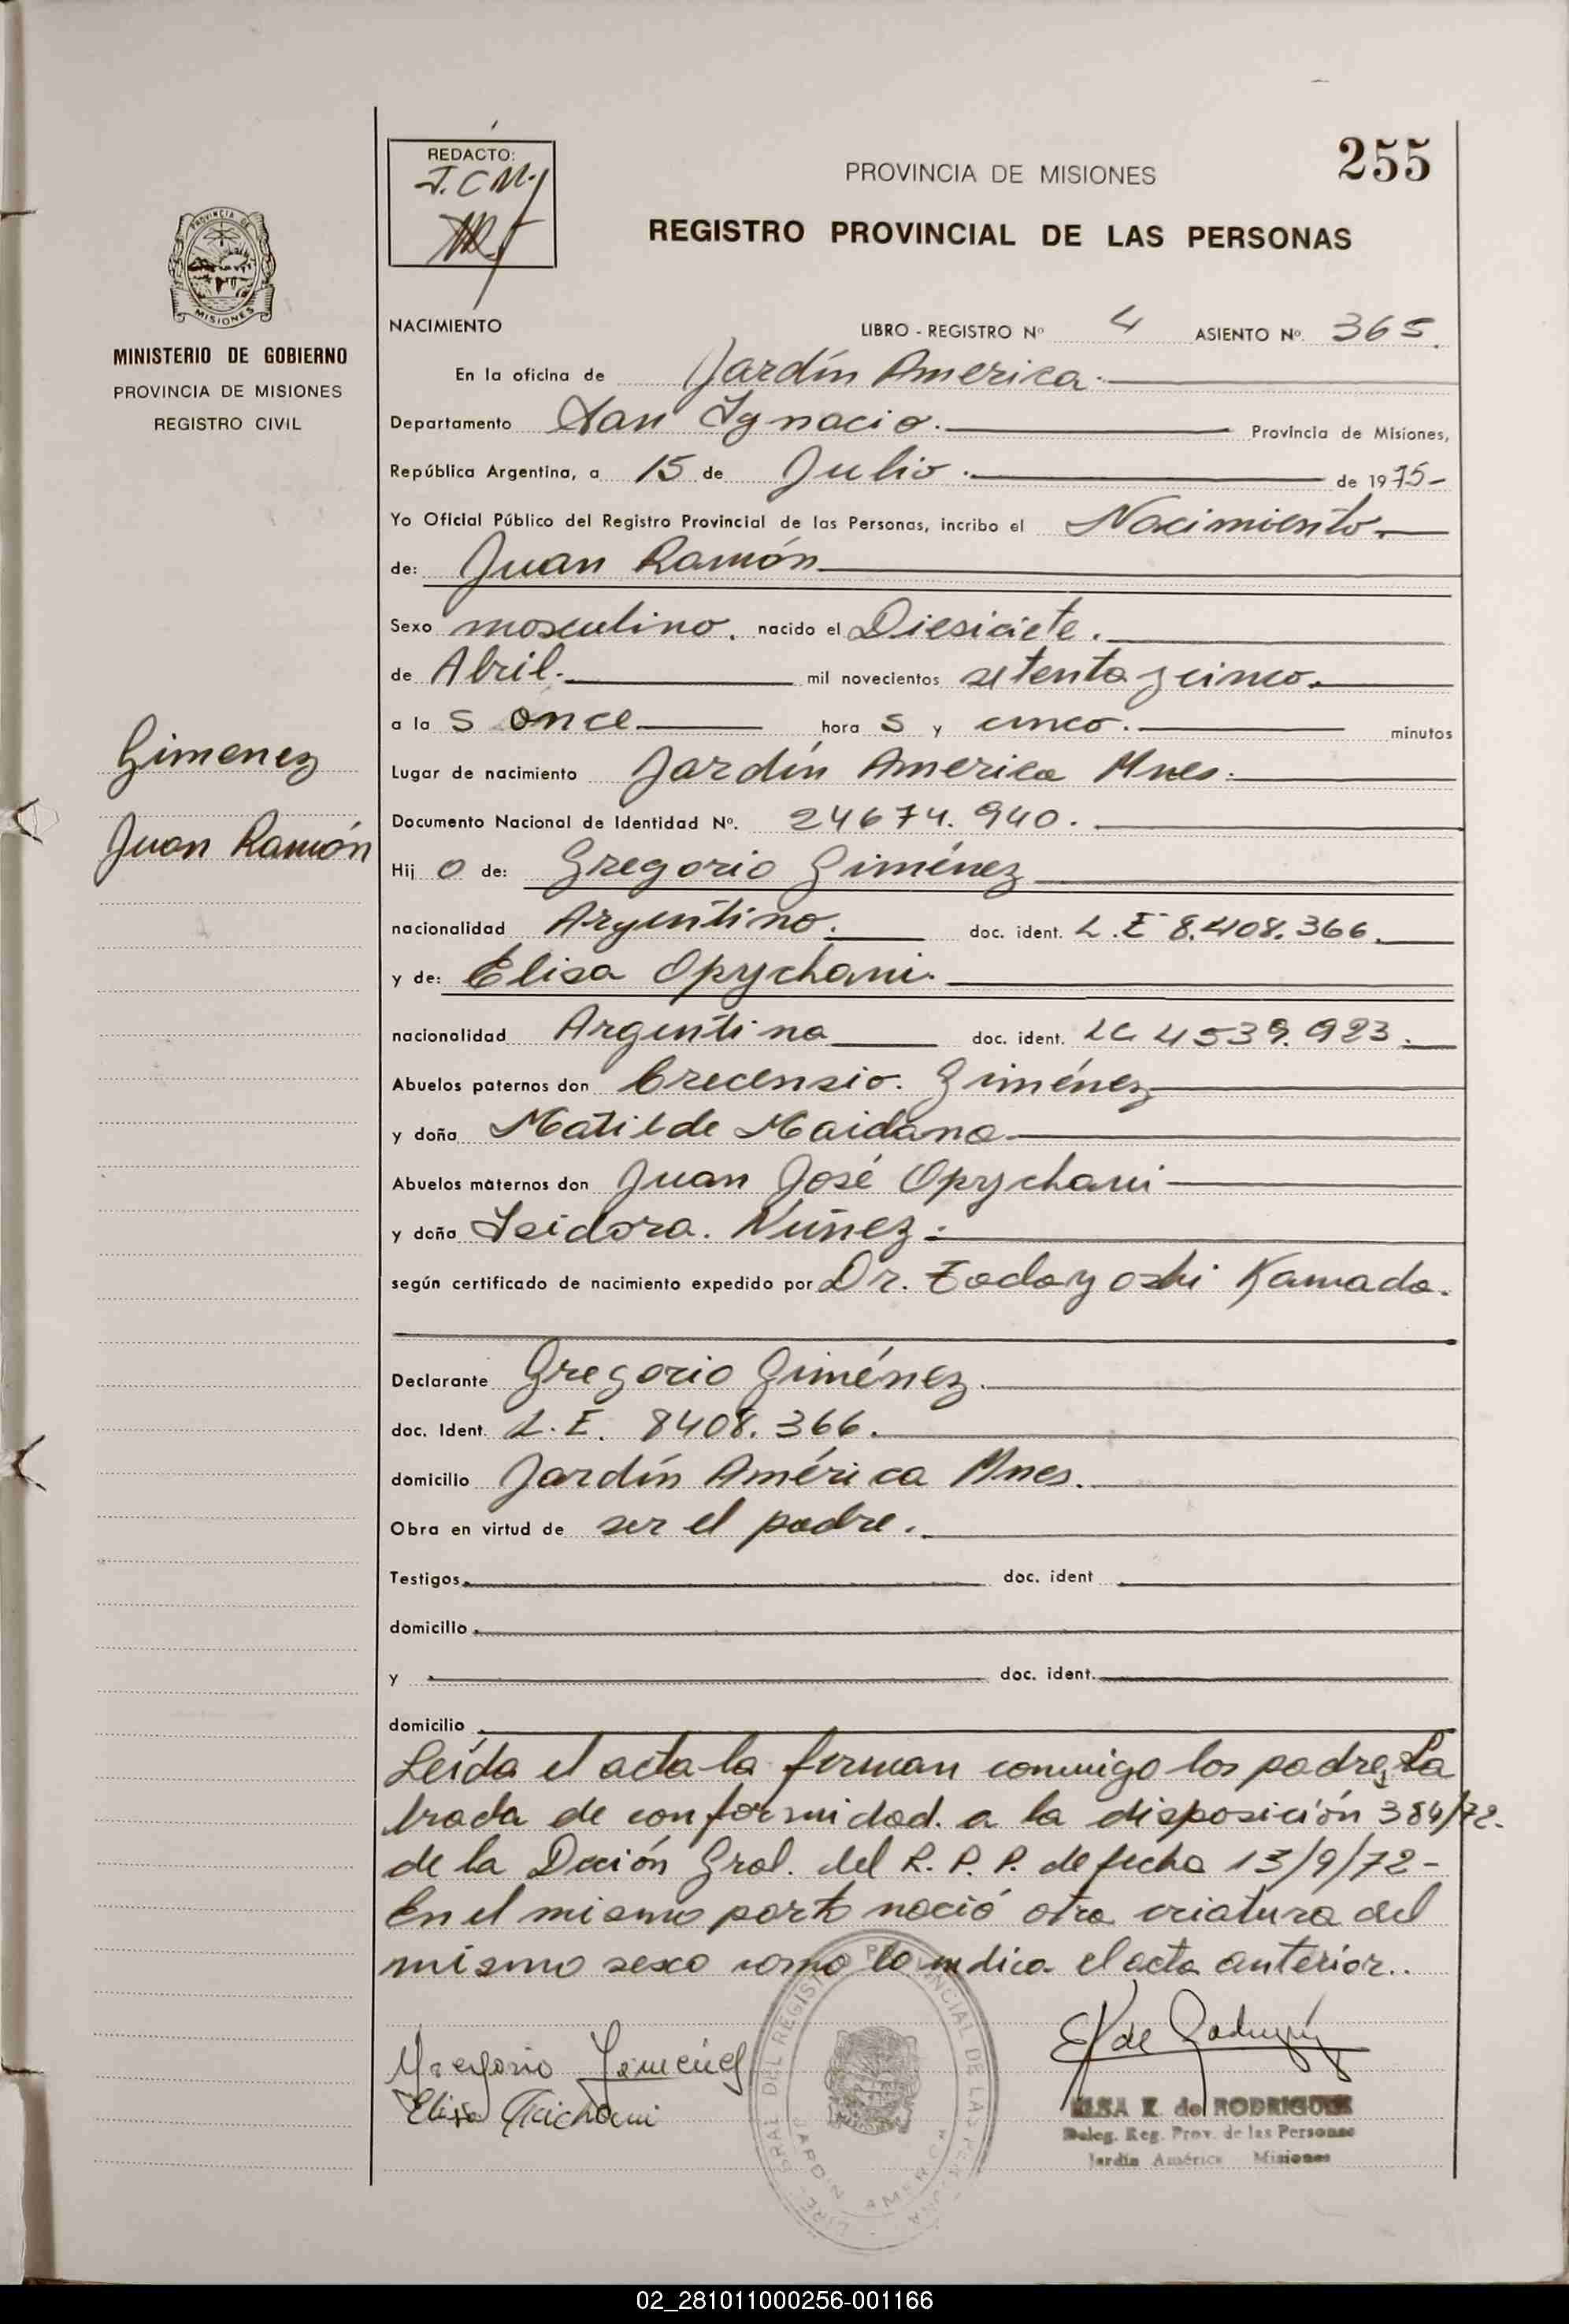 REDACTO:
J.C M.
PROVINCIA DE MISIONES
255
REGISTRO PROVINCIAL DE LAS PERSONAS
PROVINCIA DE
MISIONES
MINISTERIO DE GOBIERNO
PROVINCIA DE MISIONES
REGISTRO CIVIL
NACIMIENTO LIBRO - REGISTRO Nº 4 ASIENTO Nº. 365.
En la oficina de Jardín America.
Departamento San Ignacio. Provincia de Misiones,
República Argentina, a 15 de Julio. de 1975-
Yo Oficial Público del Registro Provincial de las Personas, incribo el Nacimiento.
de: Juan Ramón
Sexo masculino. nacido el Diesiciete.
de Abril. mil novecientos setenta y cinco.
a la s once hora s y cinco. minutos
Gimenez
Juan Ramón
Lugar de nacimiento Jardín America Mnes.
Documento Nacional de Identidad Nº. 24674.940.
Hij o de: Gregorio Giménez
nacionalidad Argentino. doc. ident. L.E 8.408.366.
y de: Elisa Opychani.
nacionalidad Argentina doc. ident. LC 4539.923.
Abuelos paternos don Crecensio. Giménez
y doña Matilde Maidana
Abuelos maternos don Juan José Opychani
y doña Isidora. Nuñez.
según certificado de nacimiento expedido por Dr. Todayoshi Kamada.
Declarante Gregorio Giménez.
doc. Ident. L.E. 8408.366.
domicilio Jardín América Mnes.
Obra en virtud de ser el padre.
Testigos doc. ident
domicilio
y doc. ident.
domicilio
Leída el acta la firman conmigo los padres, La
brada de conformidad. a la disposición 384/72.
de la Dción Gral. del R.P.P. de fecha 13/9/72-
En el mismo parto nació otra criatura del
mismo sexo como lo indica el acta anterior..
Gregorio Jimenez
Elisa
E K de Rodriguez
ELSA K. de RODRIGUES
Deleg. Reg. Prov. de las Personas
Jardín América Misiones
GRAL DEL REGISTRO PROVINCIAL DE LAS PERSONAS
JARDIN AMERICA
02_281011000256-001166